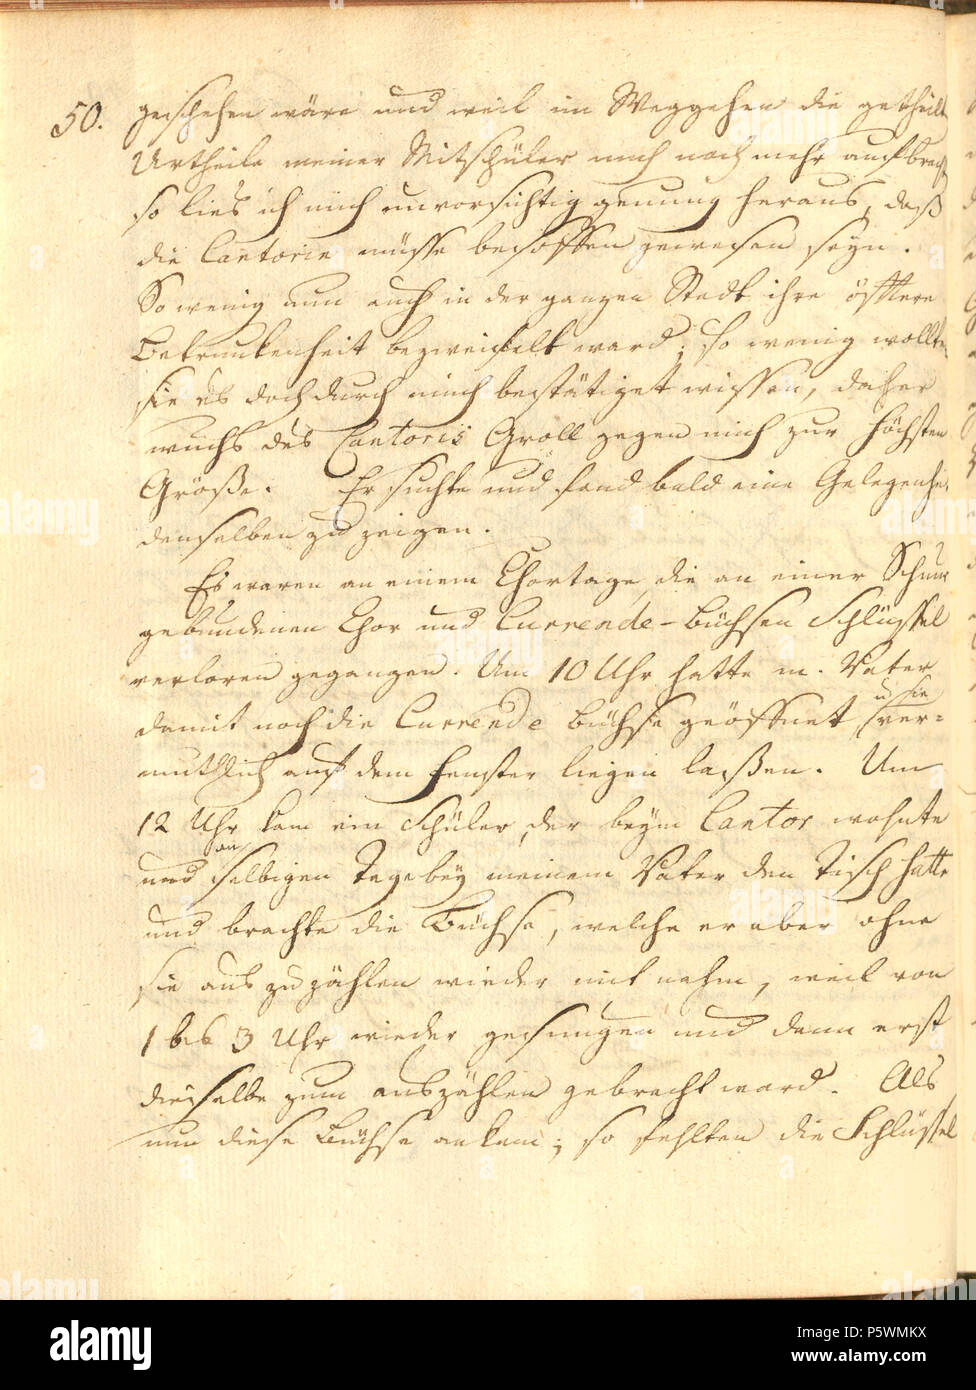 50. geschehen wäre und weil im Weggehen die getheilten
Urtheile meiner Mitschüler mich noch mehr aufbrach
so lies ich mich unvorsichtig genung heraus, daß
die Cantorin müsse besoffen gewesen seyn.
So wenig nun auch in der ganzen Stadt ihre öfftere
Betrunkenheit bezweifelt ward; so wenig wollte
sie es doch durch mich bestätiget wissen, daher
wuchs des Cantoris Groll gegen mich zur höchsten
Größe. Er suchte und fand bald eine Gelegenhei
denselben zu zeigen.
Es waren an einem Chortage, die an einer Schnur
gebundenen Chor und Currende-Büchsen Schlüssel
verloren gegangen. Um 10 Uhr hatte m. Vater
damit noch die Currende Büchse geöffnet, u. sie ver=
muthlich auf dem Fenster liegen laßen. Um
12 Uhr kam ein Schüler, der beym Cantor wohnte
und an selbigen Tage bey meinem Vater den Tisch hatte
und brachte die Büchse, welche er aber ohne
sie auszuzählen wieder mit nahm, weil von
1 bis 3 Uhr wieder gesungen und dann erst
dieselbe zum auszählen gebracht ward. Als
nun diese Büchse ankam; so fehlten die Schlüssel
alamy
Image ID: P5WMKX
www.alamy.com